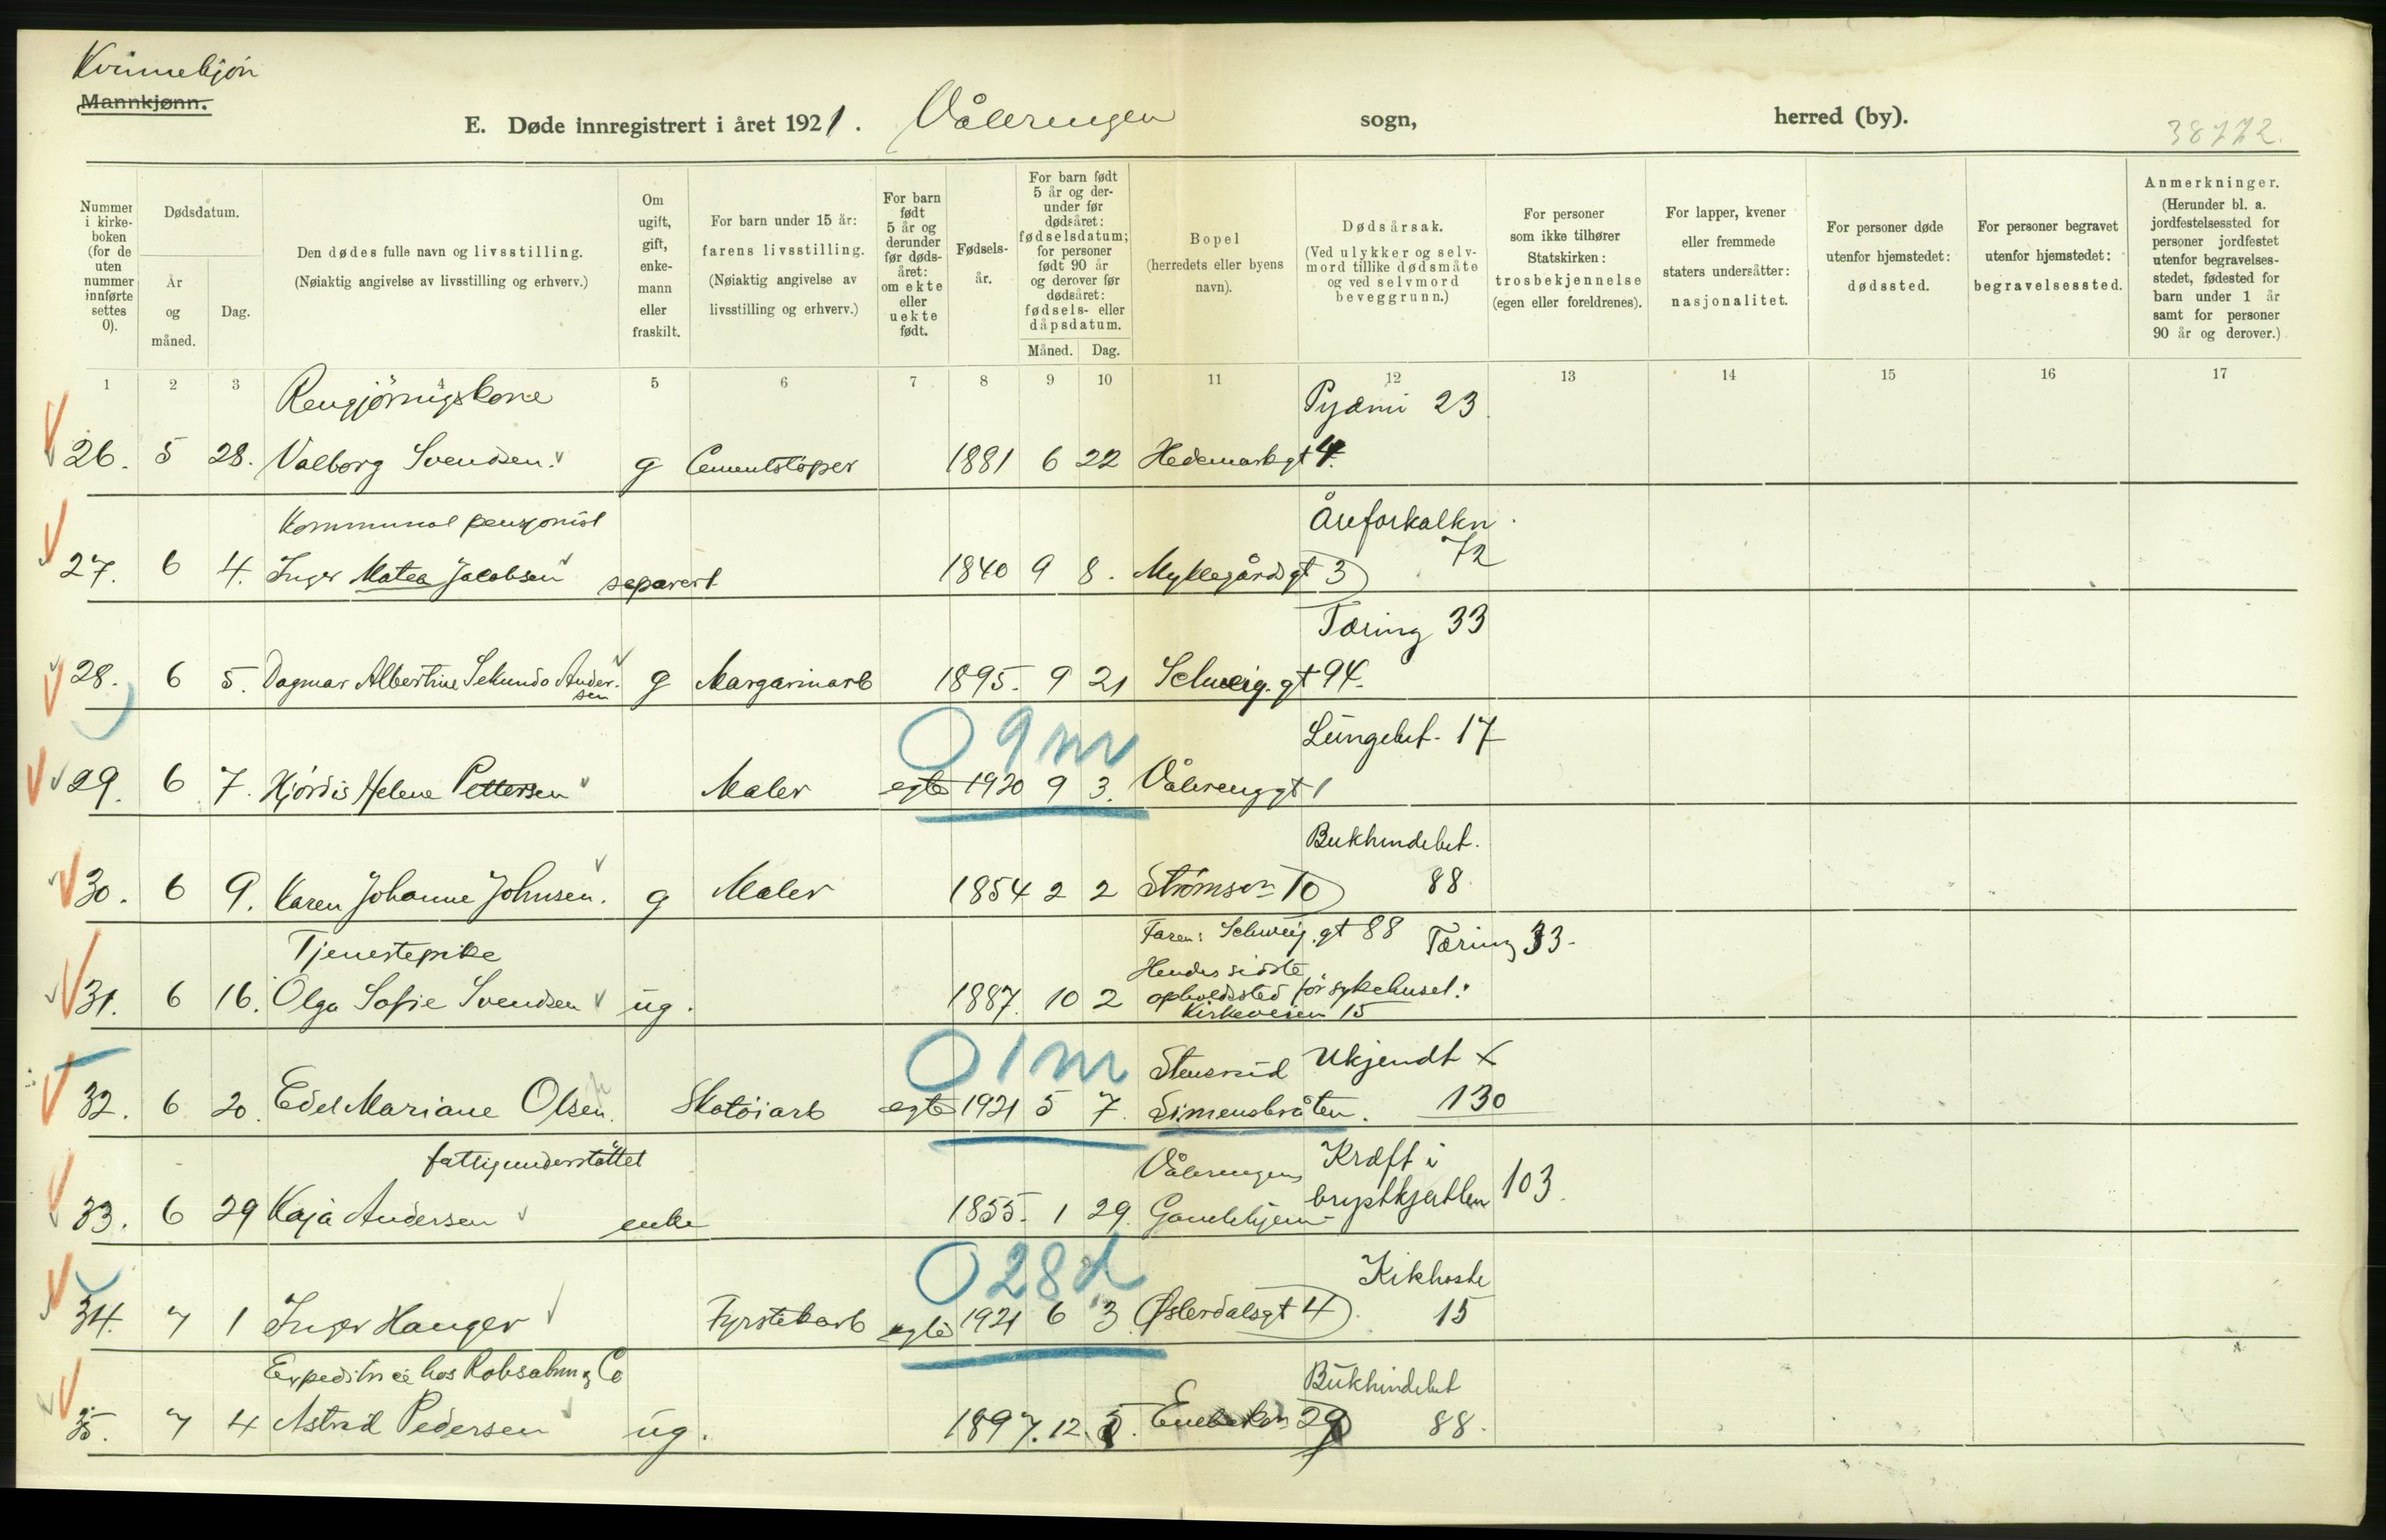 Kvinnekjøn
Mannkjønn.
E. Døde innregistrert i året 1921. Vålerengen sogn, herred (by).
38772.
Nummer i kirkeboken (for de uten nummer innførte settes 0).
Dødsdatum.
År og måned.
Dag.
Den dødes fulle navn og livsstilling.
(Nøiaktig angivelse av livsstilling og erhverv.)
Om ugift, gift, enkemann eller fraskilt.
For barn under 15 år: farens livsstilling.
(Nøiaktig angivelse av livsstilling og erhverv.)
For barn født 5 år og derunder før dødsåret: om ekte eller uekte født.
Fødselsår.
For barn født 5 år og derunder før dødsåret: fødselsdatum; for personer født 90 år og derover før dødsåret: fødsels- eller dåpsdatum.
Måned.
Dag.
Bopel
(herredets eller byens navn).
Dødsårsak.
(Ved ulykker og selvmord tillike dødsmåte og ved selvmord beveggrunn.)
For personer som ikke tilhører Statskirken: trosbekjennelse (egen eller foreldrenes).
For lapper, kvener eller fremmede staters undersåtter: nasjonalitet.
For personer døde utenfor hjemstedet: dødssted.
For personer begravet utenfor hjemstedet: begravelsessted.
Anmerkninger.
(Herunder bl. a. jordfestelsessted for personer jordfestet utenfor begravelsesstedet, fødested for barn under 1 år samt for personer 90 år og derover.)
1 2 3 4 5 6 7 8 9 10 11 12 13 14 15 16 17
Rengjöringskone Pyämi 23
26. 5 28. Valborg Svendsen. g Cementstöper 1881 6 22 Hedemarkgt 4.
Kommunal pensjonist Åreforkalkn.
72
27. 6 4. Inger Matea Jacobsen separert 1840 9 8. Myklegårdgt 3
Tæring 33
28. 6 5. Dagmar Albertine Sekunda Andersen g Margarinarb 1895. 9 21 Schweig.gt 94.
0 9 m Lungebet. 17
29. 6 7. Hjördis Helene Pettersen Maler egte 1920 9 3. Vålerenggt 1
Bukhindebet.
30. 6 9. Karen Johanne Johnsen. g Maler 1854 2 2 Strömsvn 10 88.
Tjenestepike Faren: Schweig.gt 88 Tæring 33.
Hendes sidste
31. 6 16. Olga Sofie Svendsen ug. 1887. 10 2 opholdssted før sykehuset:
Kirkeveien 15
0 1 m Stensrud Ukjendt x
32. 6 20. Edel Mariane Olsen. Skotöiarb egte 1921 5 7. Simensbråten. 130
fattigunderstöttet Vålerengens Kræft i
33. 6 29 Kaja Andersen enke 1855. 1 29. Gamlehjem brystkjertlen 103.
0 28 d Kikhoste
34. 7 1 Inger Hauger Fyrstikarb egte 1921 6 3 Østerdalsgt 4 15
Expeditrice hos Robsahm & Co Bukhindebet
35. 7 4 Astrid Pedersen ug. 1897. 12. 5. Enebakvn 29 88.